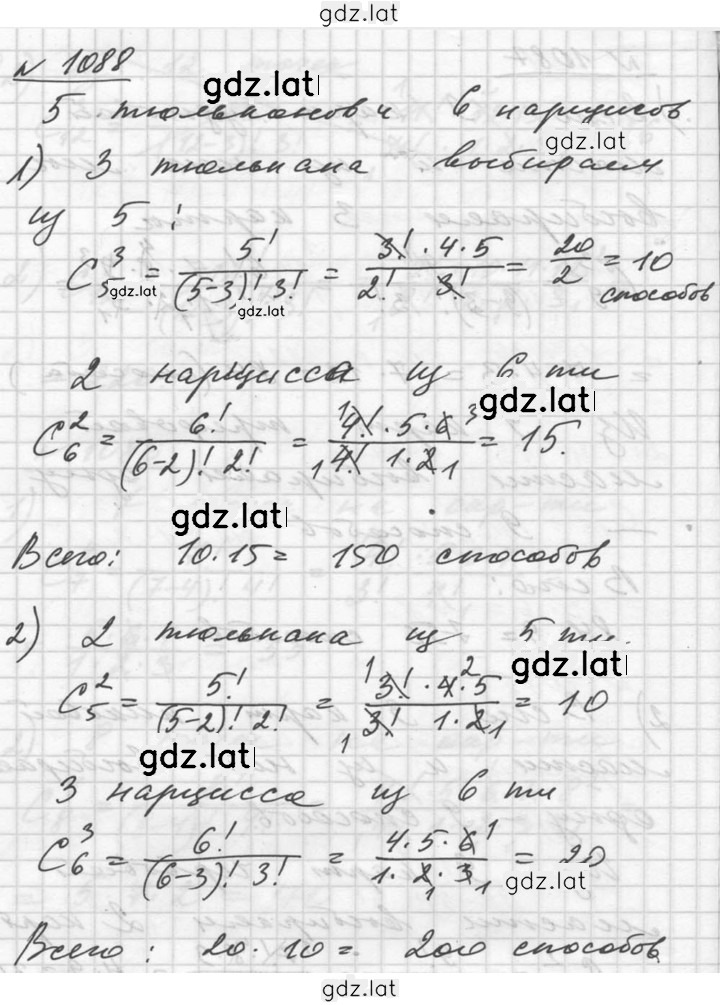 gdz.lat
№ 1088
gdz.lat
5 тюльпанов и 6 нарцисов
gdz.lat
1) 3 тюльпана выбираем
из 5!
C₅³ = 5!/((5-3)! 3!) = (3! · 4 · 5)/(2! 3!) = 20/2 = 10 способов
gdz.lat gdz.lat
2 нарцисса из 6 ти
gdz.lat
C₆² = 6!/((6-2)! 2!) = (4! · 5 · 6)/(4! 1 · 2) = 15.
gdz.lat
Всего: 10 · 15 = 150 способов
2) 2 тюльпана из 5 ти.
gdz.lat
C₅² = 5!/((5-2)! 2!) = (3! · 4 · 5)/(3! 1 · 2) = 10
gdz.lat
3 нарцисса из 6 ти
C₆³ = 6!/((6-3)! 3!) = (4 · 5 · 6)/(1 · 2 · 3) = 20
gdz.lat
Всего: 20 · 10 = 200 способов
gdz.lat